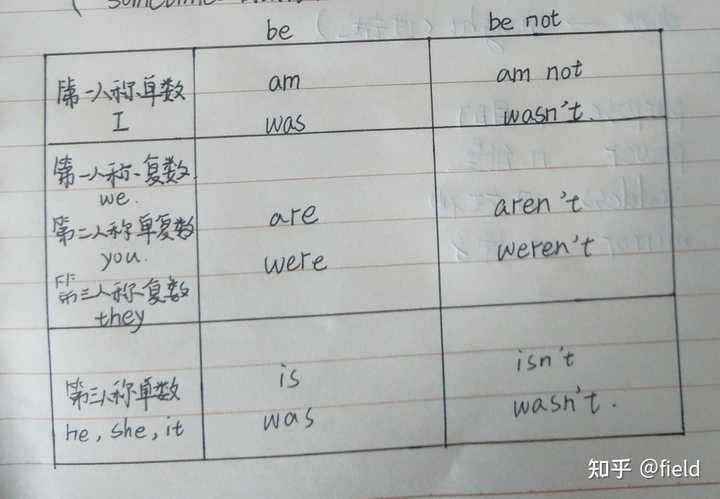 be be not
第一人称单数
I
am
was
am not
wasn't.
第一人称复数
we.
第二人称单复数
you.
第三人称复数
they
are
were
aren't
weren't
第三人称单数
he, she, it
is
was
isn't
wasn't.
知乎 @field